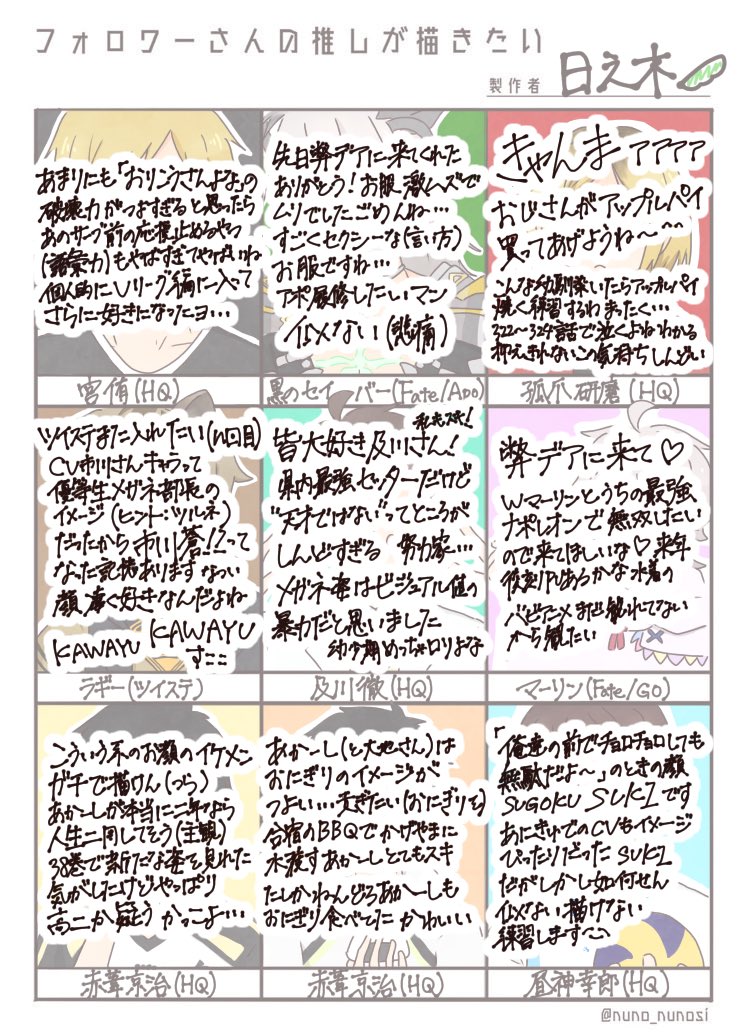 フォロワーさんの推しが描きたい
製作者 日え木
あまりにも「おりこうさんよな」の
破壊力がつよすぎると思ったら
あのサーブ前の応援止めるやつ
(語彙力)もやばすぎてやばいね
個人的にVリーグ編に入って
さらに好きになったヨ…
宮侑(HQ)
先日弊デアに来てくれた
ありがとう！お服激ムズで
ムリでしたごめんね…
すごくセクシーな(言い方)
お服ですね…
アポ履修したいマン
似メない(悲痛)
黒のセイバー(Fate/Apo)
きゃんまァァァァ
おじさんがアップルパイ
買ってあげようね〜^^
こんな幼馴染いたらアップルパイ
焼く練習するわまったく…
322〜324話で泣くよねわかる
抑えきれないこの気持ちしんどい
孤爪研磨(HQ)
ツイステまた入れたい(n回目)
CV市川さんキャラって
優等生メガネ部長の
イメージ(ヒント:ツルネ)
だったから市川蒼!?って
なった記憶あります なつい
顔凄く好きなんだよね
KAWAYU KAWAYU
すこここ
ラギー(ツイステ)
私も大好き！
皆大好き及川さん！
県内最強セッターだけど
"天才ではない"ってところが
しんどすぎる 努力家…
メガネ姿はビジュアル値の
暴力だと思いました
幼少期めっちゃロリよな
及川徹(HQ)
弊デアに来て♡
Wマーリンとうちの最強
ナポレオンで無双したい
ので来てほしいな♡来年
復刻PUあるかな 水着の
バビアニメまだ観れてない
から観たい
マーリン(Fate/GO)
こういう系のお顔のイケメン
ガチで描けん(つら)
あかーしが本当に二年なら
人生二周してそう(主観)
38巻で新たな姿を見れた
気がしたけどやっぱり
高二か疑う かっこよ…
赤葦京治(HQ)
あかーし(と大地さん)は
おにぎりのイメージが
つよい…
合宿のBBQでかげやまに
水渡すあかーしとてもスキ
たしかねんどろあかーしも
おにぎり食べてた かわいい
赤葦京治(HQ)
「俺達の前でチョロチョロしても
無駄だよ〜」のときの顔
SUGOKU SUKIです
あにきゅーでのCVもイメージ
ぴったりだった SUKI
だがしかし如何せん
似メない描けない
練習します
昼神幸郎(HQ)
@nuno_nunosi